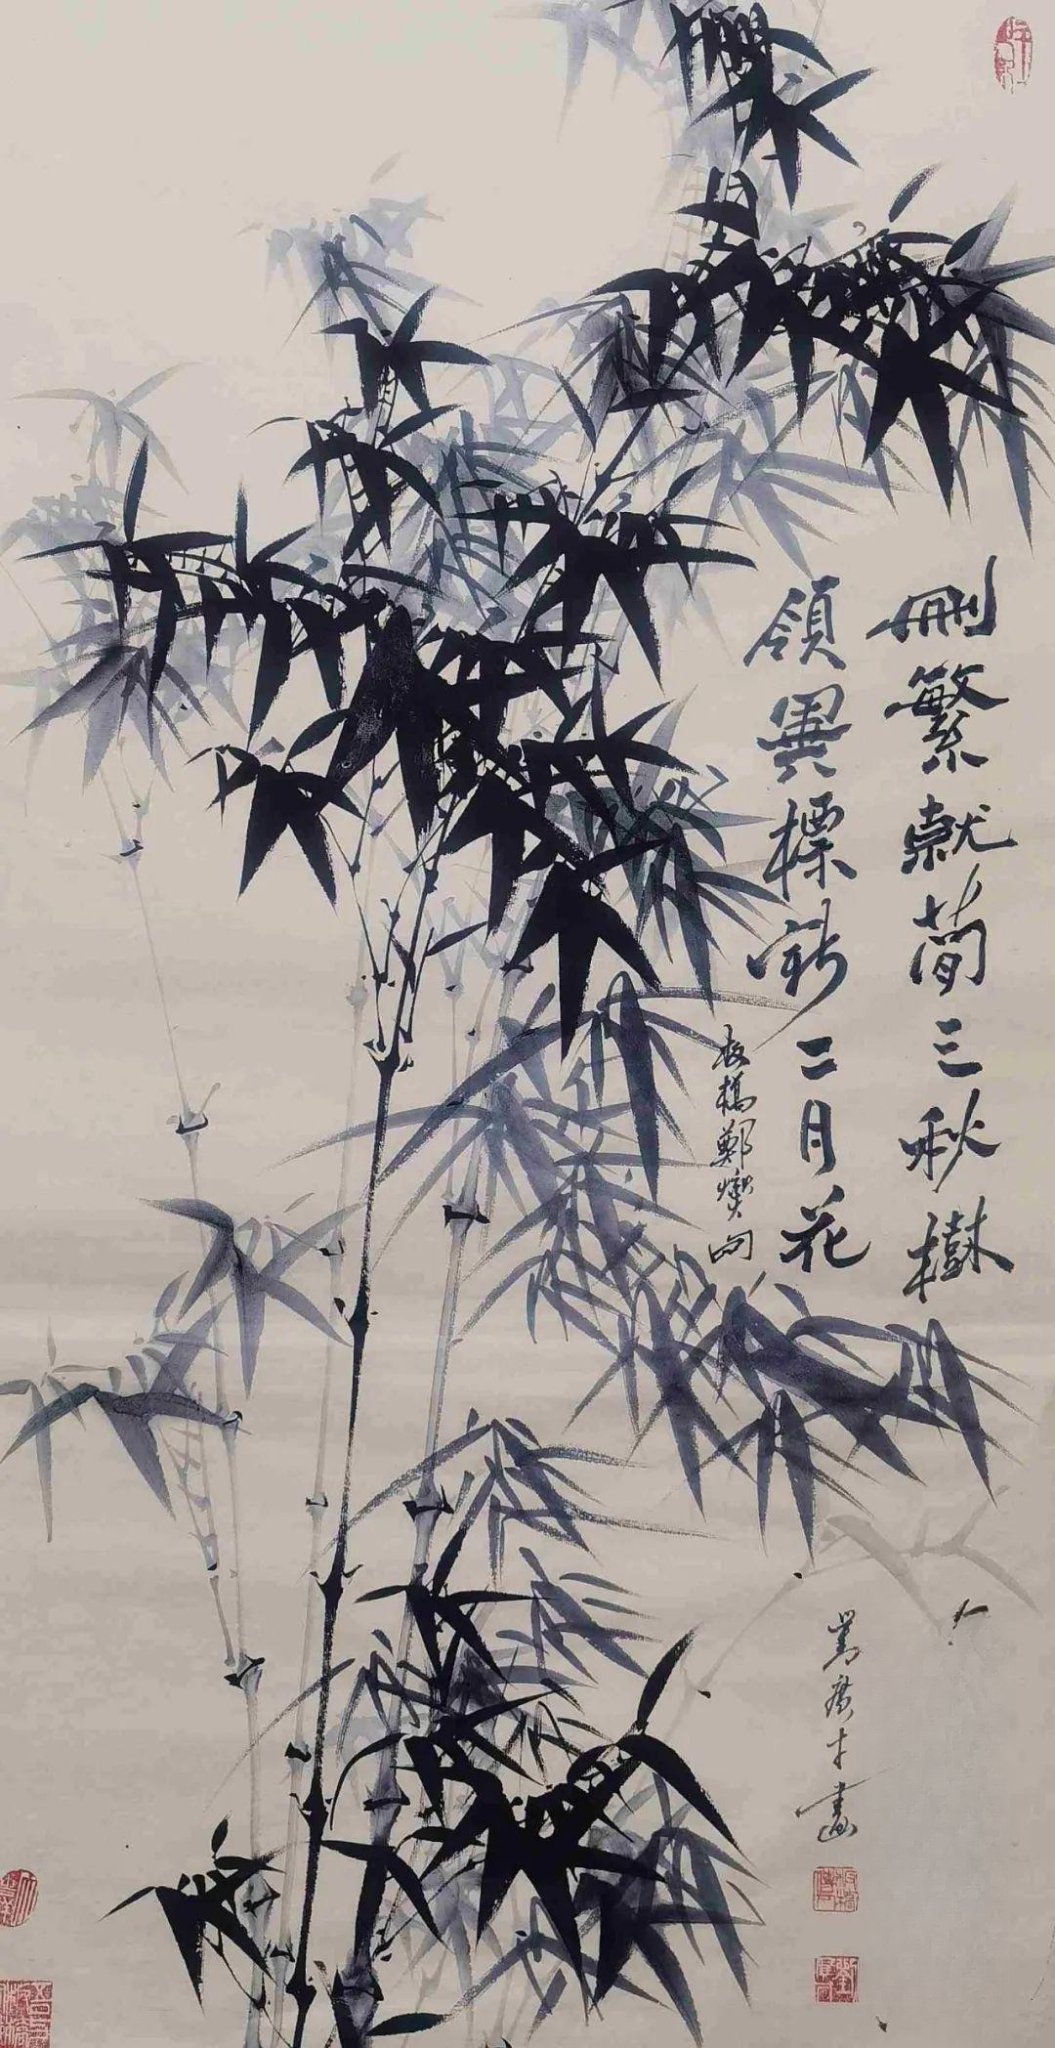 刪繁就簡三秋樹
領異標新二月花
板橋鄭燮
為廣才畫